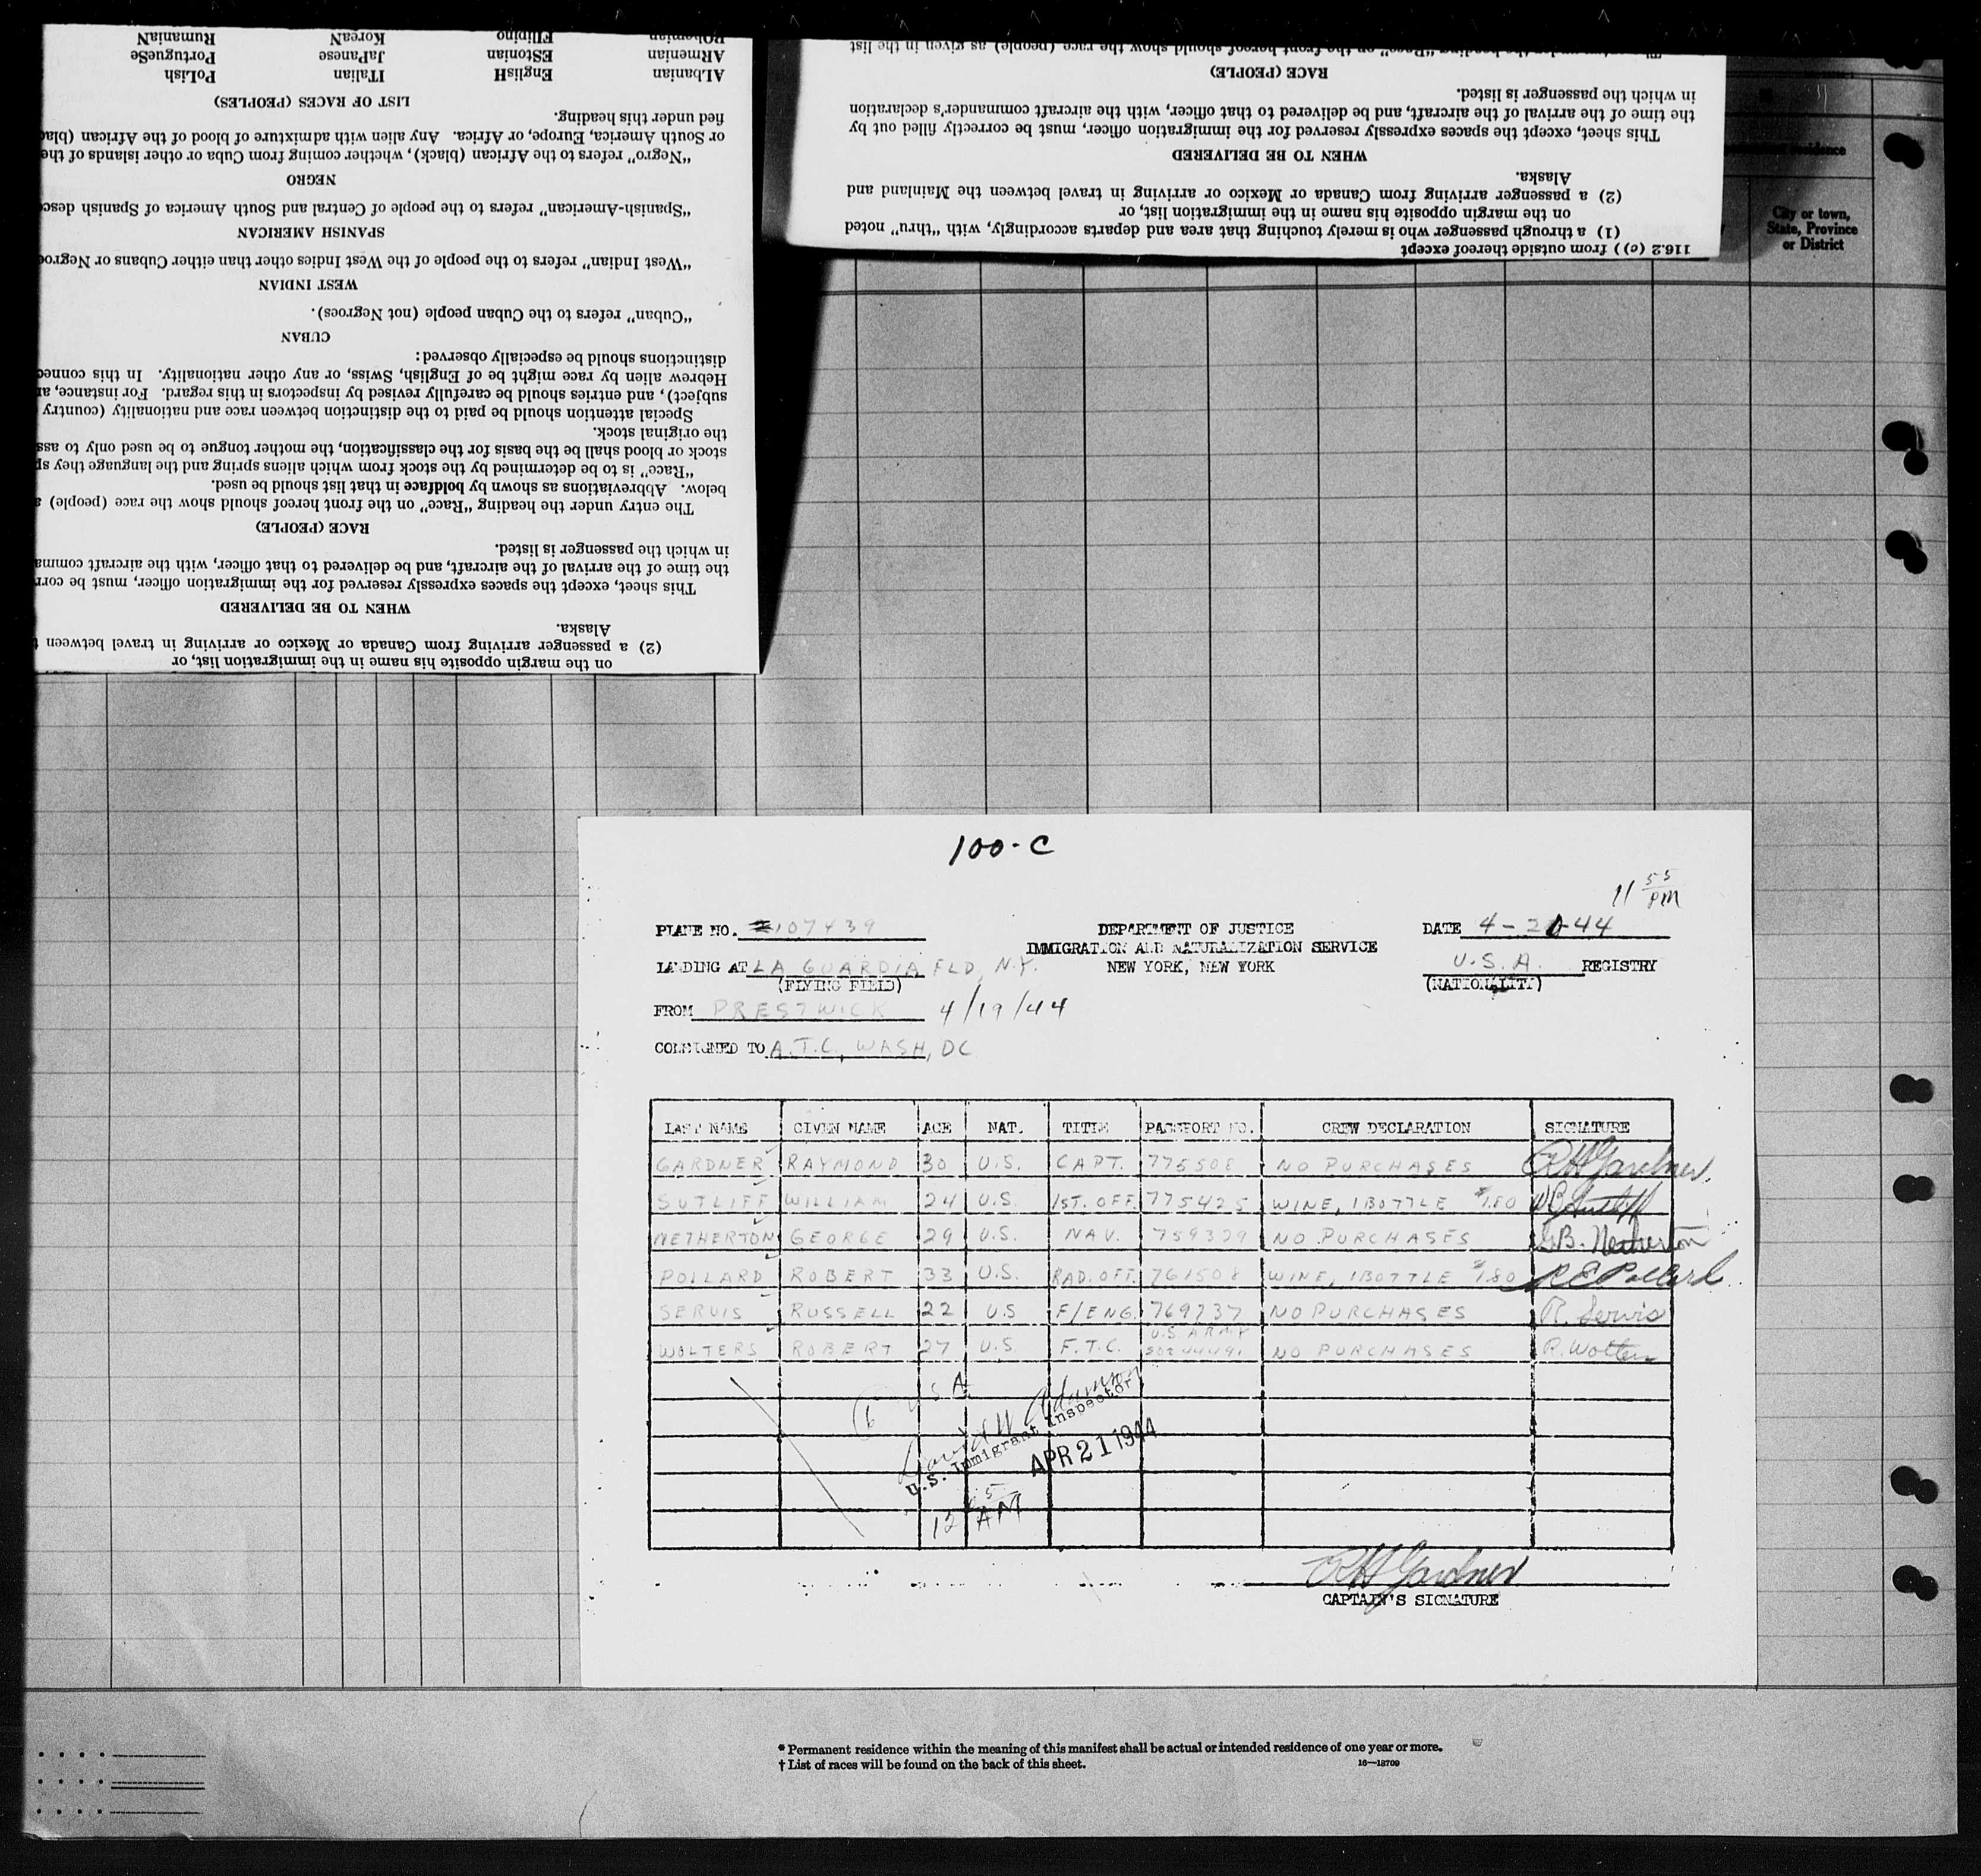 RumaniaN
KoreaN
FIlipino
PortugueSe
JaPanese
EStonian
ARmenian
PoLish
ITalian
EnglisH
ALbanian
LIST OF RACES (PEOPLES)
fied under this heading.
or South America, Europe, or Africa. Any alien with admixture of blood of the African (blac
"Negro" refers to the African (black), whether coming from Cuba or other islands of the
NEGRO
"Spanish-American" refers to the people of Central and South America of Spanish desc
SPANISH AMERICAN
"West Indian" refers to the people of the West Indies other than either Cubans or Negroe
WEST INDIAN
"Cuban" refers to the Cuban people (not Negroes).
CUBAN
distinctions should be especially observed:
Hebrew alien by race might be of English, Swiss, or any other nationality. In this connec
subject), and entries should be carefully revised by inspectors in this regard. For instance, an
Special attention should be paid to the distinction between race and nationality (country
the original stock.
stock or blood shall be the basis for the classification, the mother tongue to be used only to ass
"Race" is to be determined by the stock from which aliens spring and the language they sp
below. Abbreviations as shown by boldface in that list should be used.
The entry under the heading "Race" on the front hereof should show the race (people) a
RACE (PEOPLE)
in which the passenger is listed.
the time of the arrival of the aircraft, and be delivered to that officer, with the aircraft comma
This sheet, except the spaces expressly reserved for the immigration officer, must be corr
WHEN TO BE DELIVERED
Alaska.
(2) a passenger arriving from Canada or Mexico or arriving in travel between t
on the margin opposite his name in the immigration list, or
The entry under the heading "Race" on the front hereof should show the race (people) as given in the list
RACE (PEOPLE)
in which the passenger is listed.
the time of the arrival of the aircraft, and be delivered to that officer, with the aircraft commander's declaration
This sheet, except the spaces expressly reserved for the immigration officer, must be correctly filled out by
WHEN TO BE DELIVERED
Alaska.
(2) a passenger arriving from Canada or Mexico or arriving in travel between the Mainland and
on the margin opposite his name in the immigration list, or
(1) a through passenger who is merely touching that area and departs accordingly, with "thru" noted
116.2 (c) ) from outside thereof except
City or town,
State, Province
or District
100-C
11 55 PM
PLANE NO. 107439
DEPARTMENT OF JUSTICE
DATE 4-20-44
IMMIGRATION AND NATURALIZATION SERVICE
LANDING AT LA GUARDIA FLD, N.Y.
NEW YORK, NEW YORK
U.S.A. REGISTRY
(FLYING FIELD)
(NATIONALITY)
FROM PRESTWICK 4/19/44
CONSIGNED TO A.T.C, WASH, DC
LAST NAME GIVEN NAME AGE NAT. TITLE PASSPORT NO. CREW DECLARATION SIGNATURE
GARDNER RAYMOND 30 U.S. CAPT. 775508 NO PURCHASES RH Gardner
SUTLIFF WILLIAM 24 U.S. 1ST. OFF. 775425 WINE, 1 BOTTLE $1.80 WB Sutliff
NETHERTON GEORGE 29 U.S. NAV. 759329 NO PURCHASES G.B. Netherton
POLLARD ROBERT 33 U.S. RAD. OFF. 761508 WINE, 1 BOTTLE $1.80 R E Pollard
SERVIS RUSSELL 22 U.S F/ENG. 769737 NO PURCHASES R. Servis
WOLTERS ROBERT 27 U.S. F.T.C. U.S. ARMY NO PURCHASES R. Wolters
6 U S A
U.S. Immigrant Inspector
APR 21 1944
12 AM
RH Gardner
CAPTAIN'S SIGNATURE
* Permanent residence within the meaning of this manifest shall be actual or intended residence of one year or more.
† List of races will be found on the back of this sheet.
16—18709